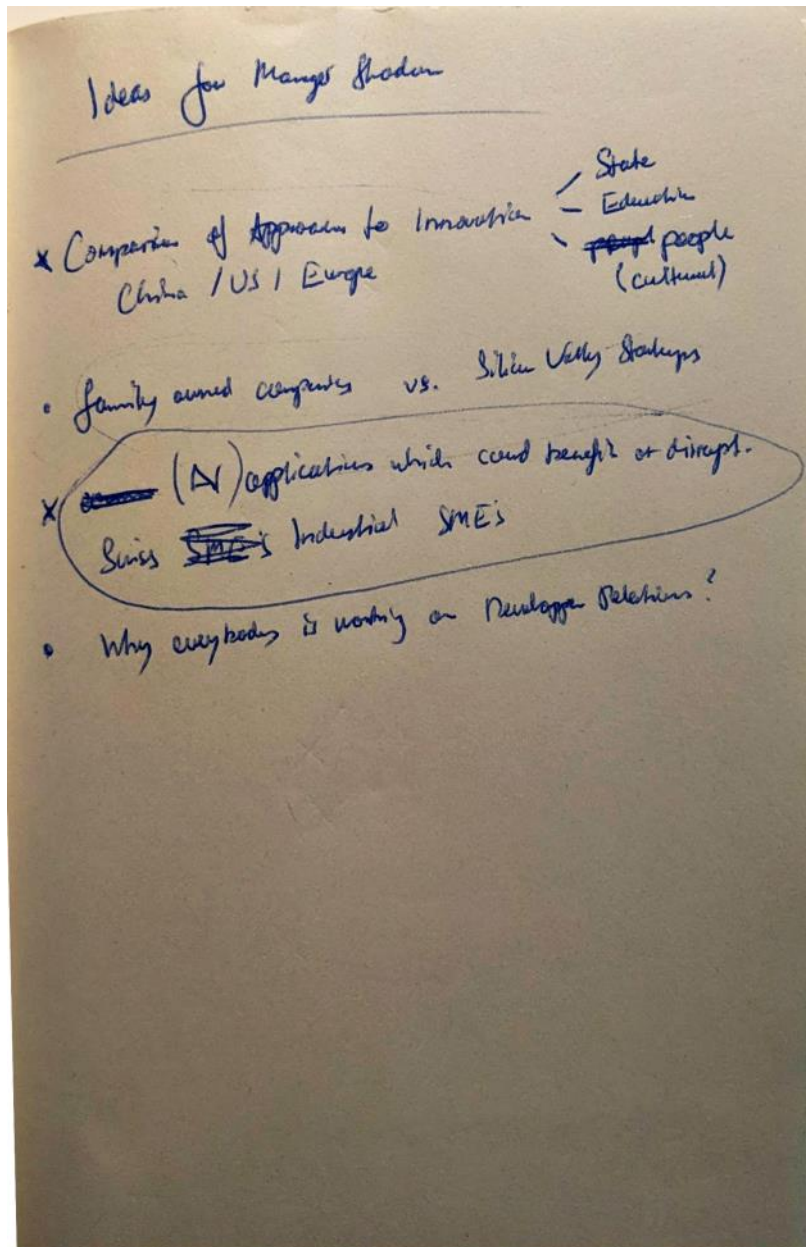 Ideas for Manager Shadow
x Comparison of Approaches to Innovation - State
- Education
- people
China / US / Europe (cultural)
• family owned companies vs. Silicon Valley Startups
x (N) applications which could benefit or disrupt.
Swiss Industrial SME's
• Why everybody is working on Developper Relations?